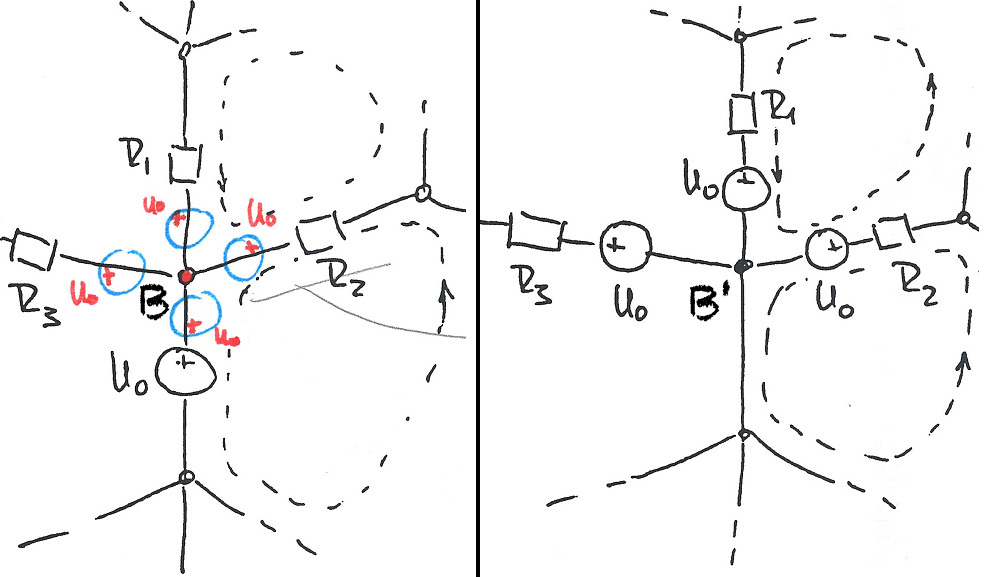 R₁
U₀
+
U₀
+
R₂
R₃
U₀
+
B
+
U₀
U₀
+
R₁
U₀
+
R₃
+
U₀
B'
+
U₀
R₂